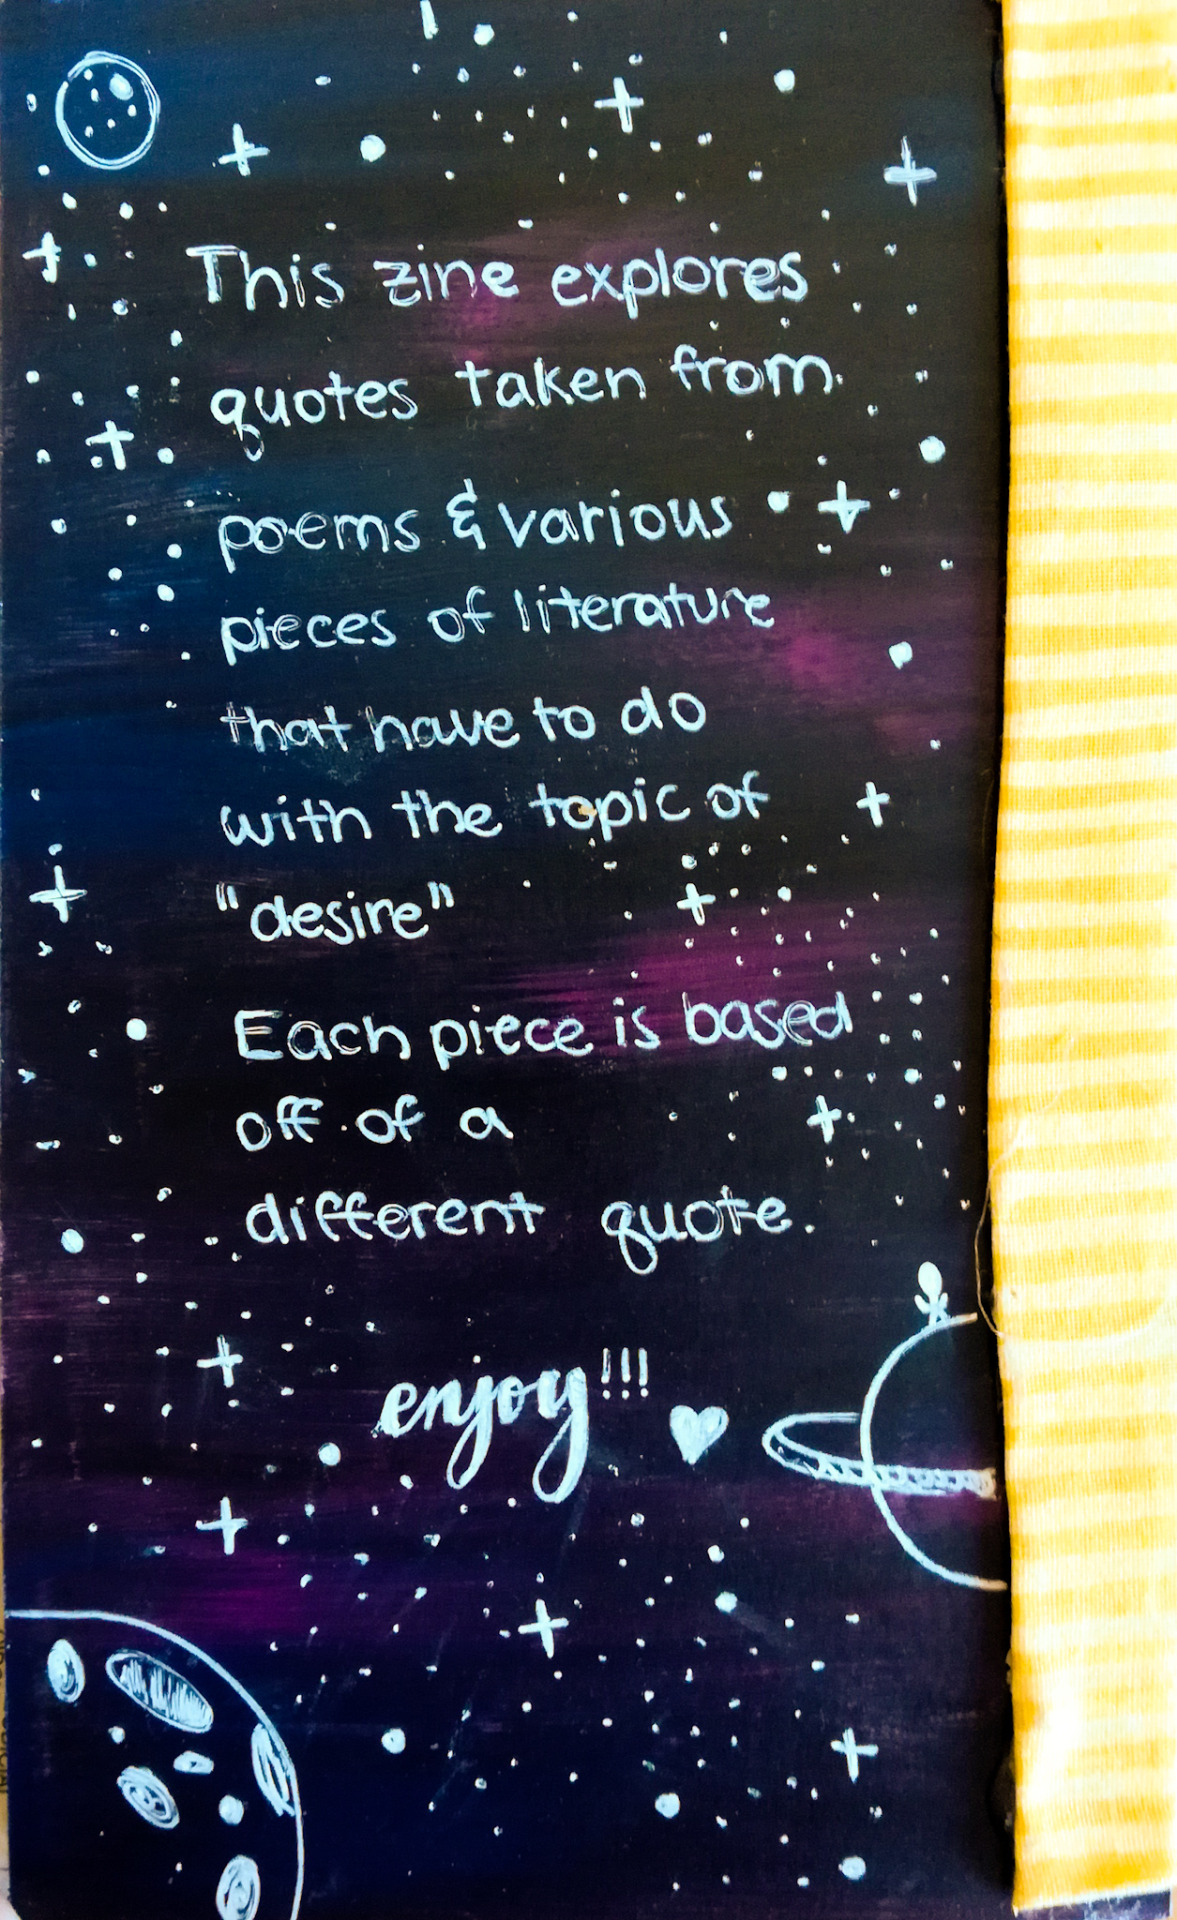 This zine explores
quotes taken from
poems & various
pieces of literature
that have to do
with the topic of
"desire"
Each piece is based
off of a
different quote.
enjoy!!!